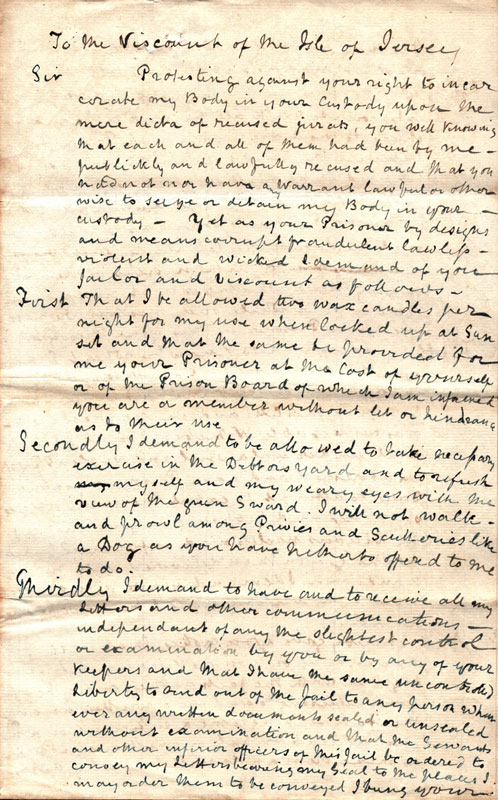 To the Viscount of the Isle of Jersey
Sir Protesting against your right to incar
cerate my Body in your Custody upon the
mere dicta of recused jurats, you well knowing
that each and all of them had been by me -
publickly and lawfully recused and that you
had not nor have a warrant lawful or other
wise to seize or detain my Body in your -
custody - Yet as your Prisoner by designs
and means corrupt fraudulent lawless -
violent and wicked I demand of you
Jailor and Viscount as follows -
First That I be allowed two wax candles per
night for my use when locked up at Sun
set and that the same be provided for
me your Prisoner at the Cost of yourself
or of the Prison Board of which I am informed
you are a member without let or hindrance
as to their use
Secondly I demand to be allowed to take necessary
exercise in the Debtors Yard and to refresh
my myself and my weary eyes with the
view of the green Sward. I will not walk -
and prowl among Privies and Sculleries like
a Dog as you have hitherto offered to me
to do.
Thirdly I demand to have and to receive all my
Letters and other communications -
independant of any the slightest control
or examination by you or by any of your
Keepers and that I have the same uncontrolled
Liberty to send out of the Jail to any person whom
ever any written documents sealed or unsealed
without examination and that the Servants
and other inferior officers of this Jail be ordered to
convey my Letters bearing my Seal to the places I
may order them to be conveyed I being your